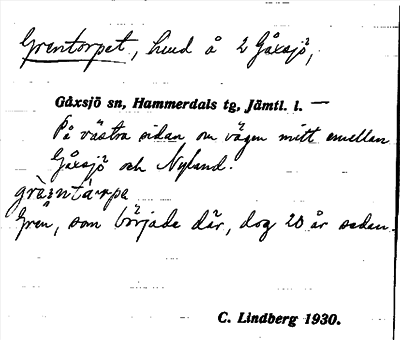 Grentorpet, hmd å 2 Gåxsjö,
Gåxsjö sn, Hammerdals tg, Jämtl. l. —
På västra sidan om vägen mitt emellan
Gåxsjö och Nyland.
Gren, som började där, dog 20 år sedan.
C. Lindberg 1930.